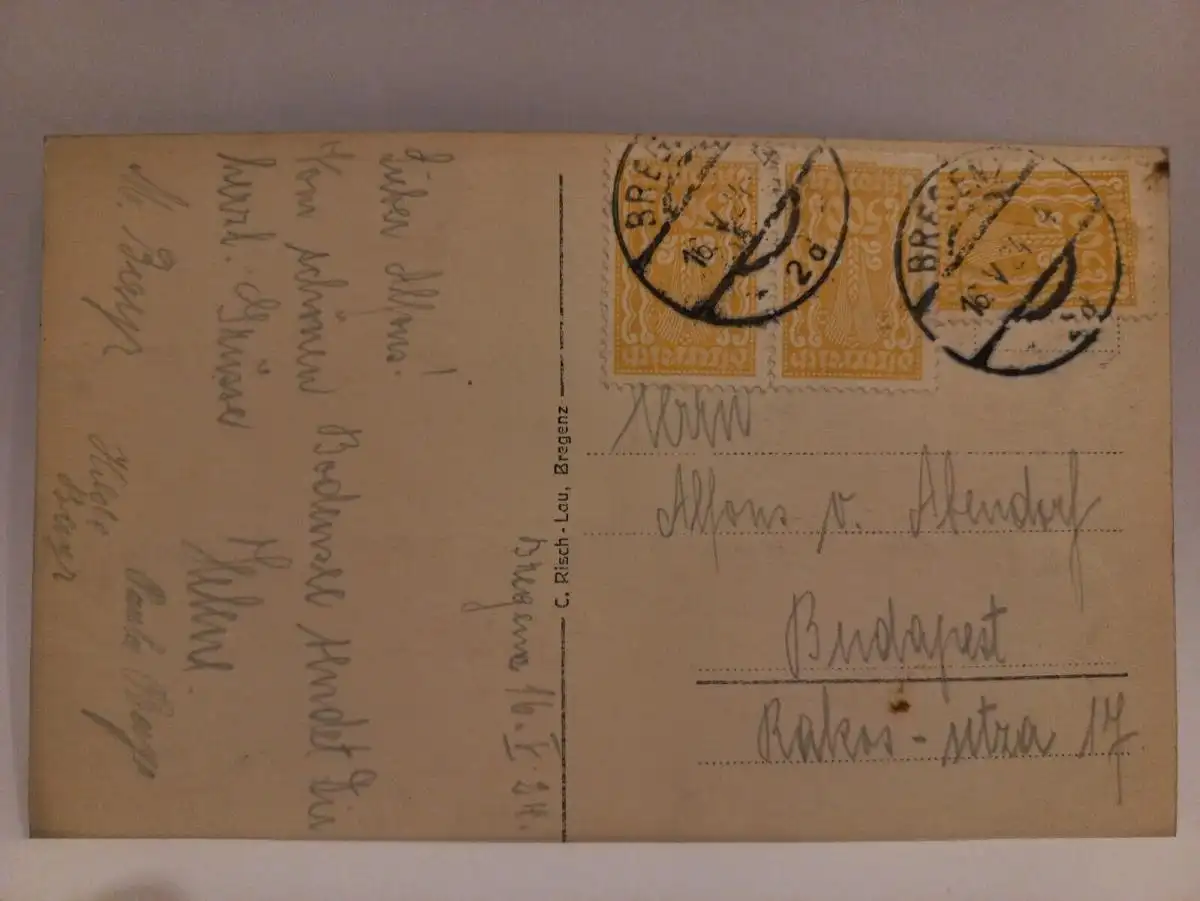 Bregenz 16. V. 24.
Lieber Alfons!
Vom schönen Bodensee sendet Dir
herzl. Grüsse
Helene
Paula
Hilde
M.
C. Risch-Lau, Bregenz
BREGENZ
16 V 24
2d
BREGENZ
16 V 24
2d
Österreich
Österreich
Herrn
Alfons v. Abendorf
Budapest
Rakos-utza 17